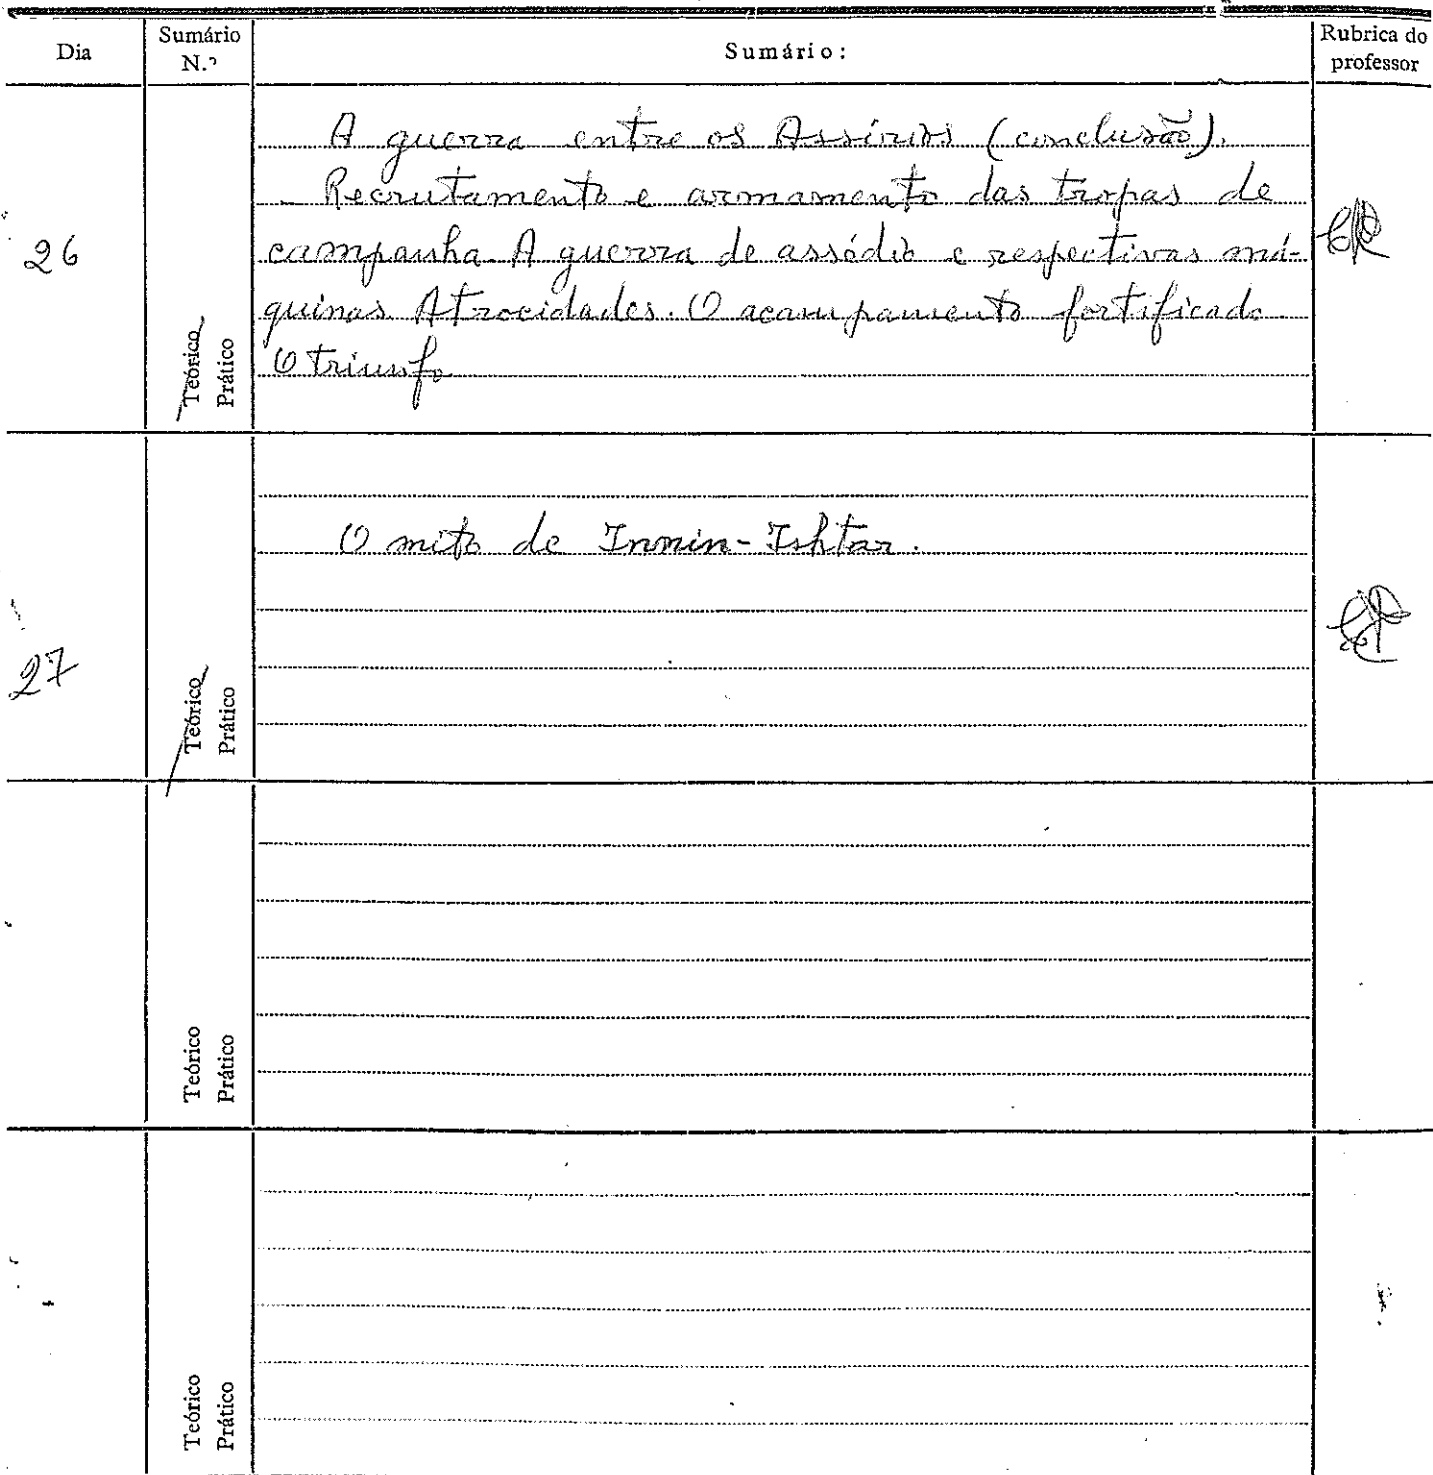 Dia
Sumário N.º
Sumário:
Rubrica do professor
26
Teórico
Prático
A guerra entre os Assírios (conclusão).
- Recrutamento e armamento das tropas de
campanha. A guerra de assédio e respectivas má-
quinas Atrocidades. O acampamento fortificado
O triunfo
27
Teórico
Prático
O mito de Innin-Ishtar.
Teórico
Prático
Teórico
Prático